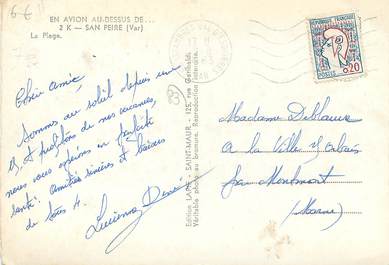 6 €
EN AVION AU-DESSUS DE...
2 K — SAN PEIRE (Var)
La Plage.
Chère amie,
Sommes au soleil depuis un
et profitons de nos vacances,
nous vous espérons en parfaite
santé. Amitiés sincères et baisers
de tous 4.
Lucienne
Edition LAPIE - SAINT-MAUR - 125, rue Garibaldi.
Véritable photo au bromure. Reproduction interdite.
3
REPUBLIQUE FRANÇAISE
POSTES 0,20
Madame
a La Ville
par Montmort
(Marne)